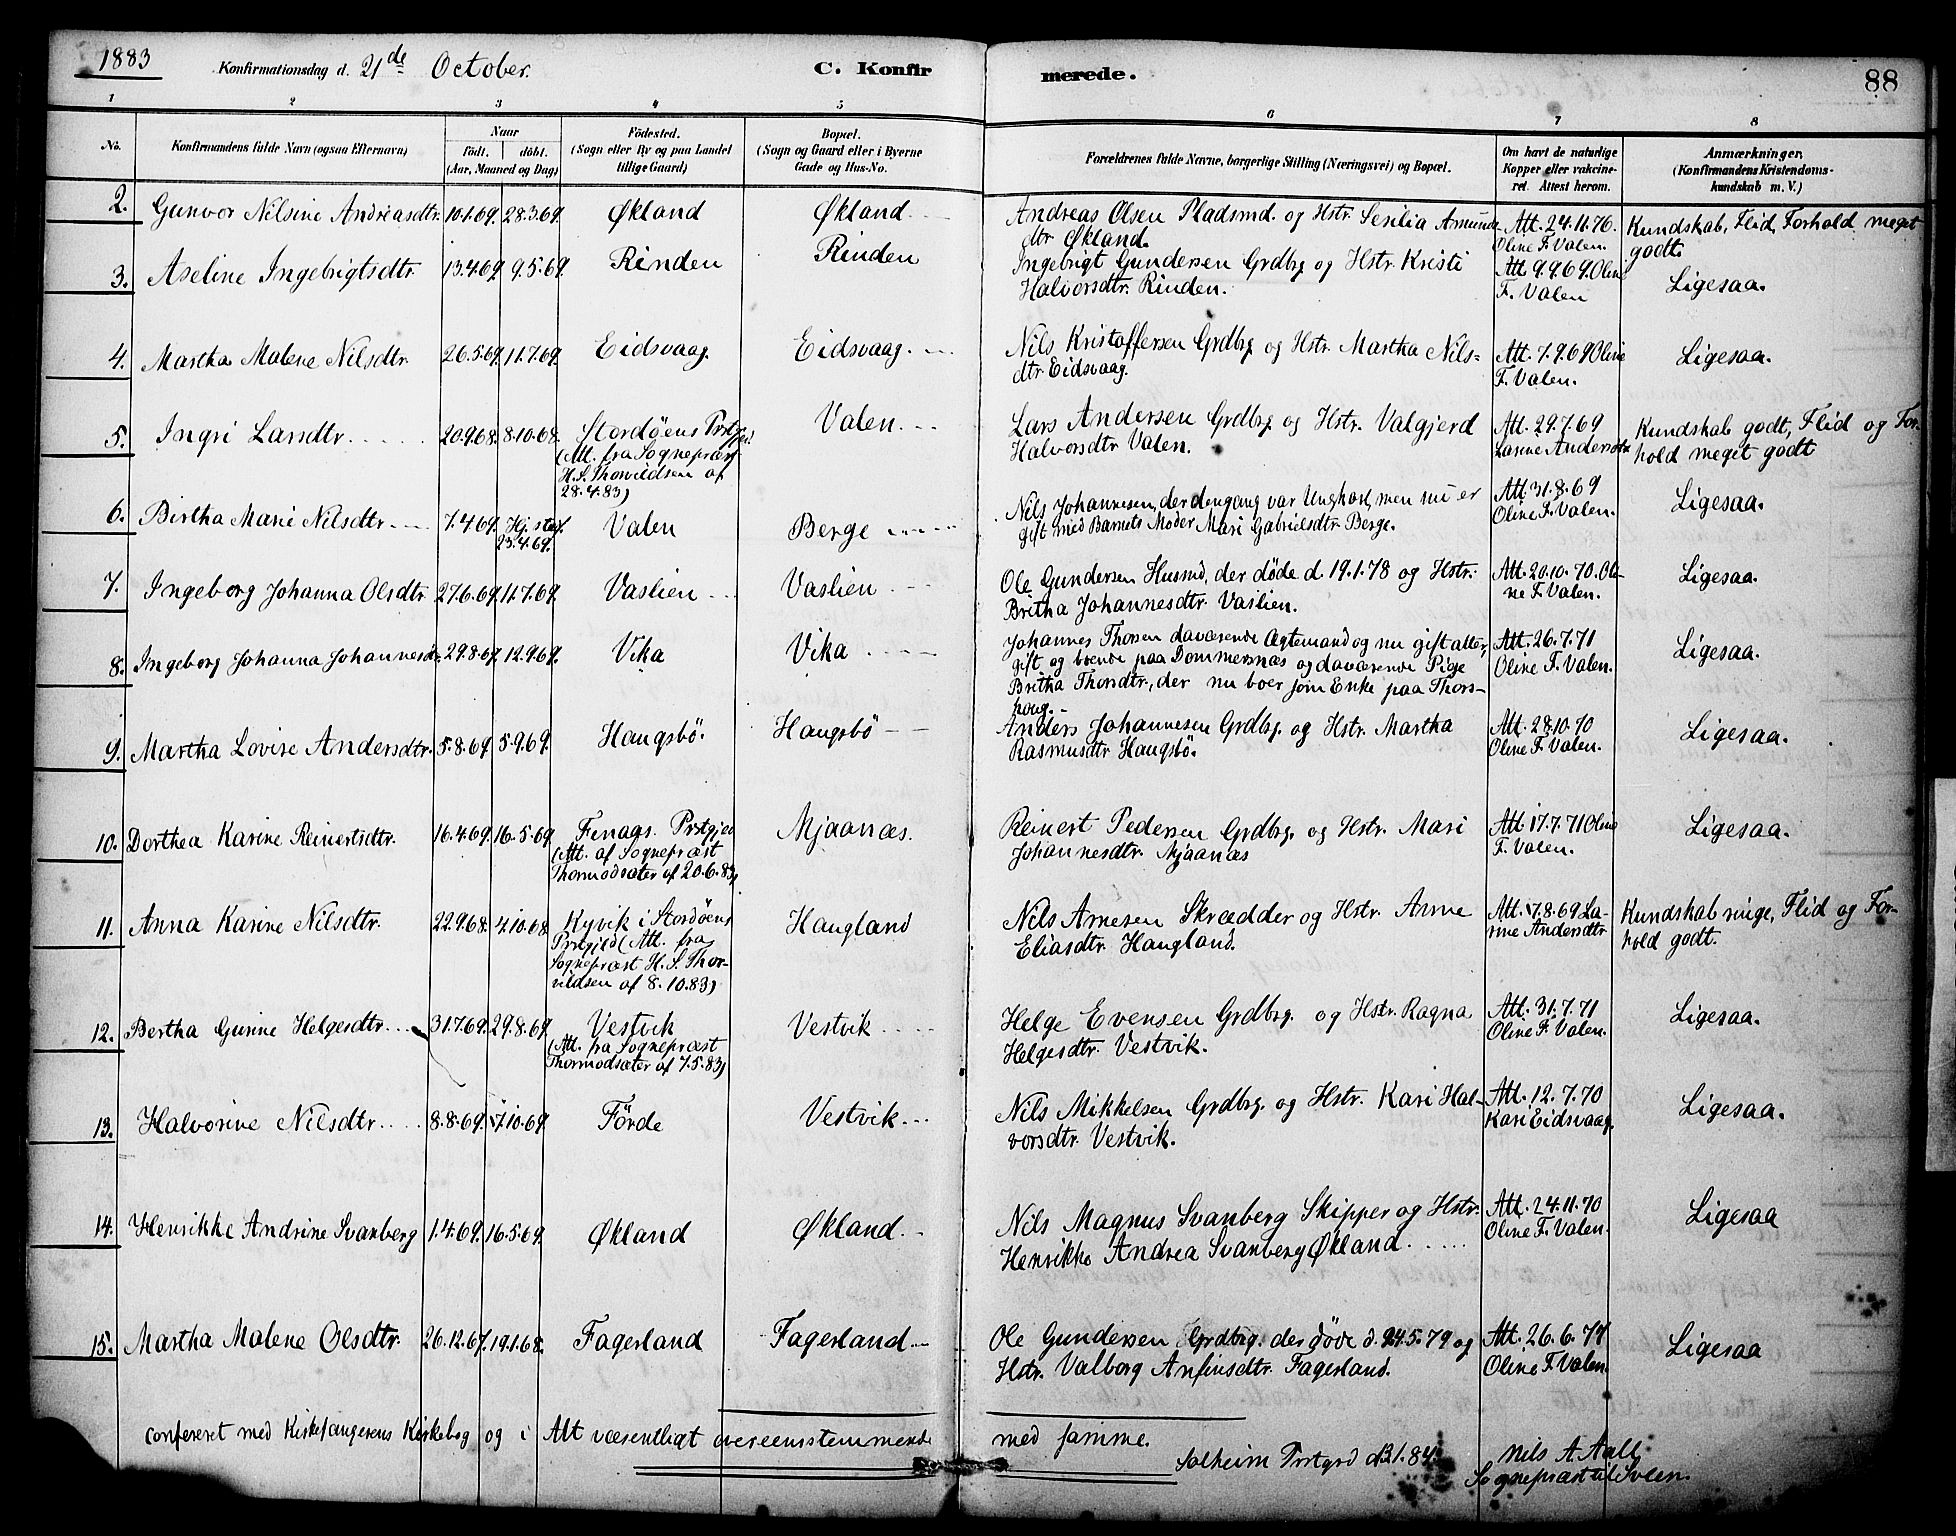 1883 Konfirmationsdag d. 21de October. C. Konfirmerede. 88
1 2 3 4 5 6 7 8
No. Konfirmandens fulde Navn (ogsaa Efternavn) Naar födt. döbt. (Aar, Maaned og Dag) Födested. (Sogn eller By og paa Landet tillige Gaard) Bopæl. (Sogn og Gaard eller i Byerne Gade og Hus-No. Forældrenes fulde Navne, borgerlige Stilling (Næringsvei) og Bopæl. Om havt de naturlige Kopper eller vakcineret. Attest herom. Anmærkninger. (Konfirmandens Kristendomskundskab m. V.)
2. Gunvor Nilsine Andreasdtr. 10.1.69. 28.3.69. Økland Økland Andreas Olsen Pladsmd. og Hstr. Sesilia Amunds-
dtr. Økland. Att. 24.11.76. Oline F. Valen. Kundskab, Flid, Forhold meget godt.
3. Aseline Ingebrigtsdtr. 13.4.69. 9.5.69. Rinden Rinden Ingebrigt Gundersen Grdbrg. og Hstr. Kristi
Halvorsdtr. Rinden. Att. 9.9.69. Oline F. Valen Ligesaa.
4. Martha Malene Nilsdtr. 26.5.69. 11.7.69. Eidsvaag. Eidsvaag. Nils Kristoffersen Grdbrg. og Hstr. Martha Nils-
dtr. Eidsvaag. Att. 7.9.69 Oline F. Valen. Ligesaa.
5. Ingri Larsdtr. 20.9.68. 8.10.68. Stordöens Prstgjld. (Att. fra Sognepræst H. S. Thorvildsen af 28.4.83) Valen. Lars Andersen Grdbrg. og Hstr. Valgjerd
Halvorsdtr. Valen. Att. 29.7.69 Larine Andersdtr Kundskab godt, Flid og For-
hold meget godt
6. Birtha Marie Nilsdtr. 7.4.69. Hj. 23.4.69. Valen Berge Nils Johannesen, der dengang var Unghast, men nu er
gift med Barnets Moder Mari Gabrielsdtr. Berge. Att. 31.8.69 Oline F. Valen. Ligesaa.
7. Ingeborg Johanna Olsdtr. 27.6.69. 11.7.69. Vaslien Vaslien Ole Gundersen Husmd, der døde d. 19.1.78 og Hstr.
Britha Johannesdtr. Vaslien. Att. 20.10.70. Oline F. Valen. Ligesaa.
8. Ingeborg Johanna Johannesdtr. 29.8.69. 12.9.69. Vika Vika Johannes Thorsen daværende Ægtemand og nu gift atter,
gift og boende paa Dommersnæs og daværende Pige
Britha Thorsdtr., der nu boer som Enke paa Thors-
houg. Att. 26.7.71 Oline F. Valen. Ligesaa.
9. Martha Lovise Andersdtr. 5.8.69. 5.9.69. Haugsbö. Haugsbö Anders Johannesen Grdbrg. og Hstr. Martha
Rasmusdtr Haugsbö. Att. 28.10.70 Oline F. Valen. Ligesaa.
10. Dorthea Karine Reinertsdtr. 16.4.69. 16.5.69. Finaas Prstgjld (Att. af Sognepræst Thormodsæter af 20.6.83) Mjaanæs. Reinert Pedersen Grdbrg. og Hstr. Mari
Johannesdtr. Mjaanæs Att. 17.7.71 Oline F. Valen. Ligesaa.
11. Anna Karine Nilsdtr. 22.9.68. 4.10.68. Kyvik i Stordöens Prstgjld (Att. fra Sognepræst H. S. Thorvildsen af 8.10.83) Haugland Nils Arnesen Skrædder og Hstr. Anne
Eliasdtr. Haugland. Att. 17.8.69 Larine Andersdtr Kundskab nüge, Flid og For-
hold godt.
12. Bertha Gurine Helgesdtr. 31.7.69. 29.8.69. Vestvik (Att. fra Sognepræst Thormodsæter af 7.5.83) Vestvik Helge Evensen Grdbrg. og Hstr. Ragna
Helgesdtr. Vestvik. Att. 31.7.71 Oline F. Valen. Ligesaa.
13. Halvorine Nilsdtr. 8.8.69. 17.10.69. Förde Vestvik. Nils Mikkelsen Grdbrg. og Hstr. Kari Hal-
vorsdtr. Vestvik. Att. 12.7.70 Kari Eidsvaag. Ligesaa.
14. Henrikke Andrine Svanberg 1.4.69. 16.5.69. Økland Økland. Nils Magnus Svanberg Skipper og Hstr.
Henrikke Andrea Svanberg Økland. Att. 24.11.70 Oline F. Valen. Ligesaa
15. Martha Malene Olsdtr. 26.12.67. 19.1.68. Fagerland Fagerland. Ole Gundersen Grdbrg. der døde d. 24.5.79 og
Hstr. Valborg Anfinsdtr. Fagerland. Att. 26.6.77 Oline F. Valen Ligesaa
confereret med Kirkesangerens Kirkebog og i Alt væsentligt overeensstemmende med samme.
Solheim Prstgrd d. 13.1.84. Nils A. Aall
Sognepræst til Sveen.